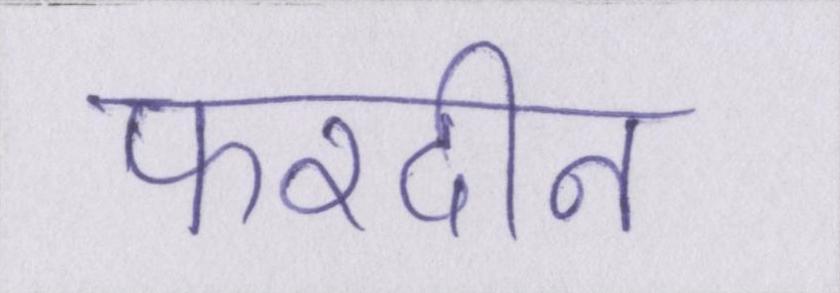 फरदीन